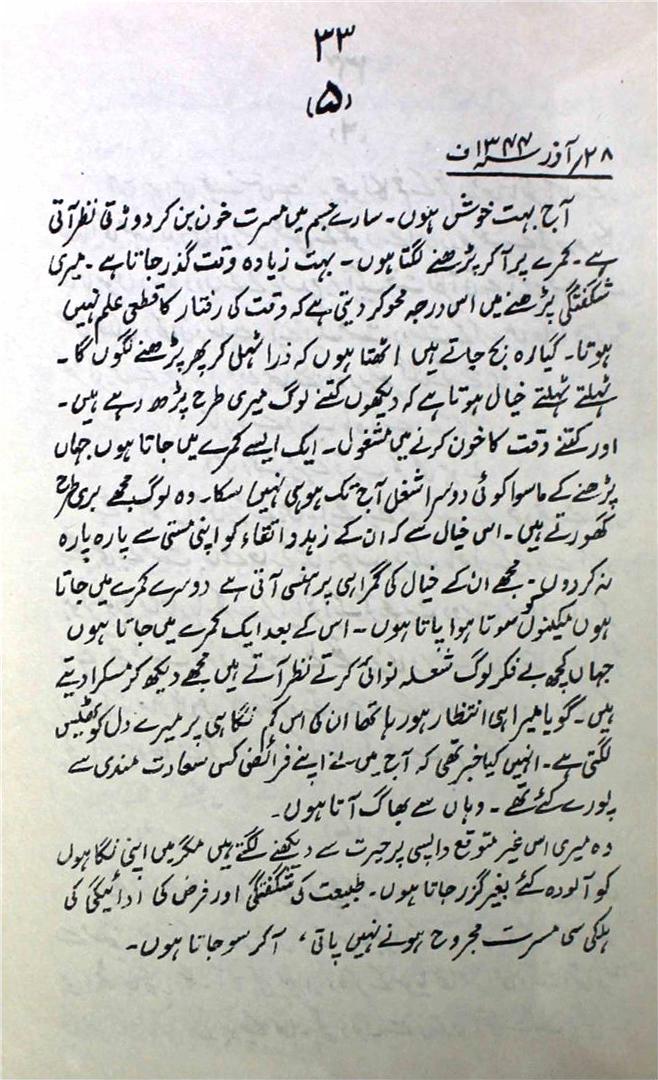 ۳۳
(۵)
۲۸/آذر ۱۳۴۴ ف
آج بہت خوش ہوں۔ سارے جسم میں مسرت خون بن کر دوڑتی نظر آتی
ہے۔ کمرے پر آکر پڑھنے لگتا ہوں۔ بہت زیادہ وقت گذر جاتا ہے۔ میری
شگفتگی پڑھنے میں اس درجہ محو کر دیتی ہے کہ وقت کی رفتار کا قطعی علم نہیں
ہوتا۔ گیارہ بج جاتے ہیں اٹھتا ہوں کہ ذرا ٹہل کر پھر پڑھنے لگوں گا۔
ٹہلتے ٹہلتے خیال ہوتا ہے کہ دیکھوں کتنے لوگ میری طرح پڑھ رہے ہیں۔
اور کتنے وقت کا خون کرنے میں مشغول۔ ایک ایسے کمرے میں جاتا ہوں جہاں
پڑھنے کے ماسوا کوئی دوسرا شغل آج تک ہو ہی نہیں سکا۔ وہ لوگ مجھے بری طرح
گھورتے ہیں۔ اس خیال سے کہ ان کے زہد و اتقاء کو اپنی مستی سے پارہ پارہ
نہ کر دوں۔ مجھے ان کے خیال کی گمراہی پر ہنسی آتی ہے دوسرے کمرے میں جاتا
ہوں مکینوں کو سوتا ہوا پاتا ہوں۔ اس کے بعد ایک کمرے میں جاتا ہوں
جہاں کچھ بے فکر لوگ شعلہ نوائی کرتے نظر آتے ہیں مجھے دیکھ کر مسکرا دیتے
ہیں۔ گویا میرا ہی انتظار ہو رہا تھا ان کی اس کم نگاہی پر میرے دل کو ٹھیس
لگتی ہے۔ انہیں کیا خبر تھی کہ آج میں نے اپنے فرائض کس سعادت مندی سے
پورے کئے تھے۔ وہاں سے بھاگ آتا ہوں۔
وہ میری اس غیر متوقع واپسی پر حیرت سے دیکھنے لگتے ہیں مگر میں اپنی نگاہوں
کو آلودہ کئے بغیر گزر جاتا ہوں۔ طبیعت کی شگفتگی اور فرض کی ادائیگی کی
ہلکی سی مسرت مجروح ہونے نہیں پاتی، آکر سو جاتا ہوں۔